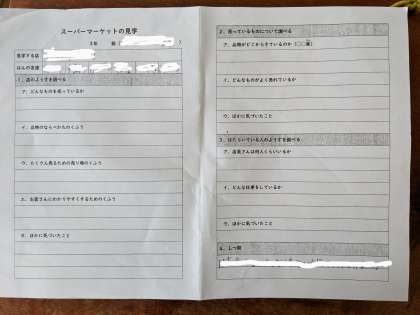 スーパーマーケットの見学
3年 組 ( )
見学する店
はんの友達
1. 店のようすを調べる
ア. どんなものを売っているか
イ. 品物のならべかたのくふう
ウ. たくさん売るための売り場のくふう
エ. お客さんにわかりやすくするためのくふう
オ. ほかに気づいたこと
2. 売っているものについて調べる
ア. 品物がどこからきているのか(〇〇産)
イ. どんなものがよく売れているか
ウ. ほかに気づいたこと
3. はたらいている人のようすを調べる
ア. 店員さんは何人くらいいるか
イ. どんな仕事をしているか
ウ. ほかに気づいたこと
4. しつ問